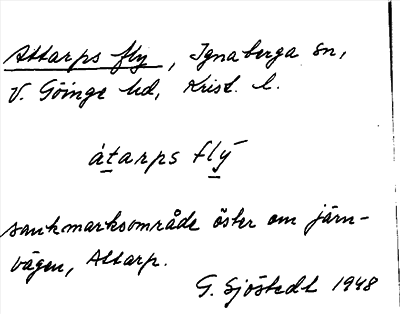 Attarps fly, Ignaberga sn,
V. Göinge hd, Krist. l.
átarps flý
sankmarksområde öster om järn-
vägen, Attarp.
G. Sjöstedt 1948